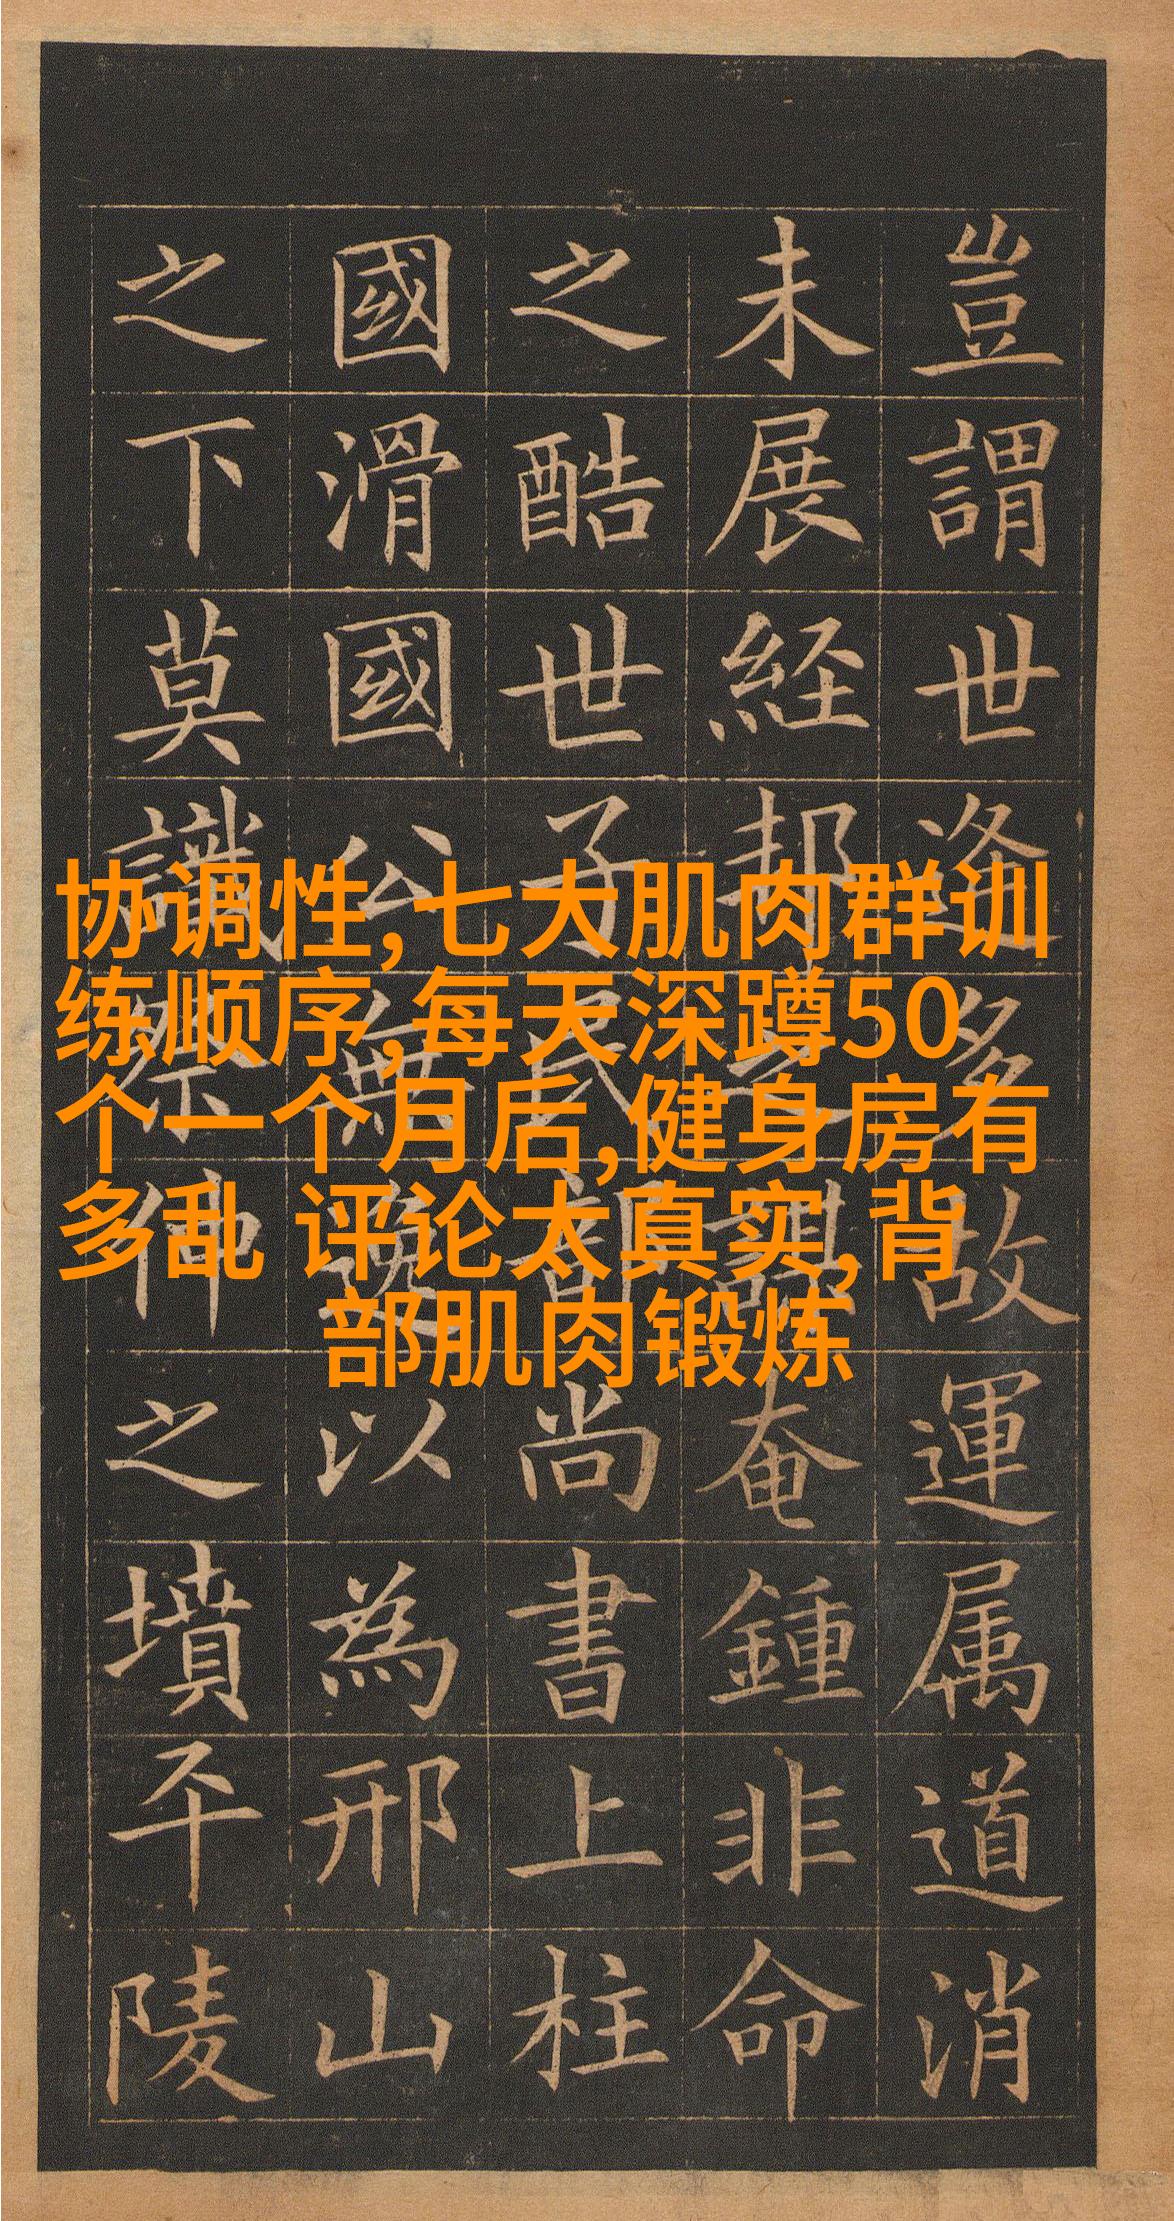 豈謂世逢多故運属道消
未展經邦之謨奄鍾非命
之酷世子民部尚書上柱
國滑國公無逸以為邢山
之下莫識祭仲之墳平陵
协调性,七大肌肉群训
练顺序,每天深蹲50
个一个月后,健身房有
多乱 评论太真实,背
部肌肉锻炼